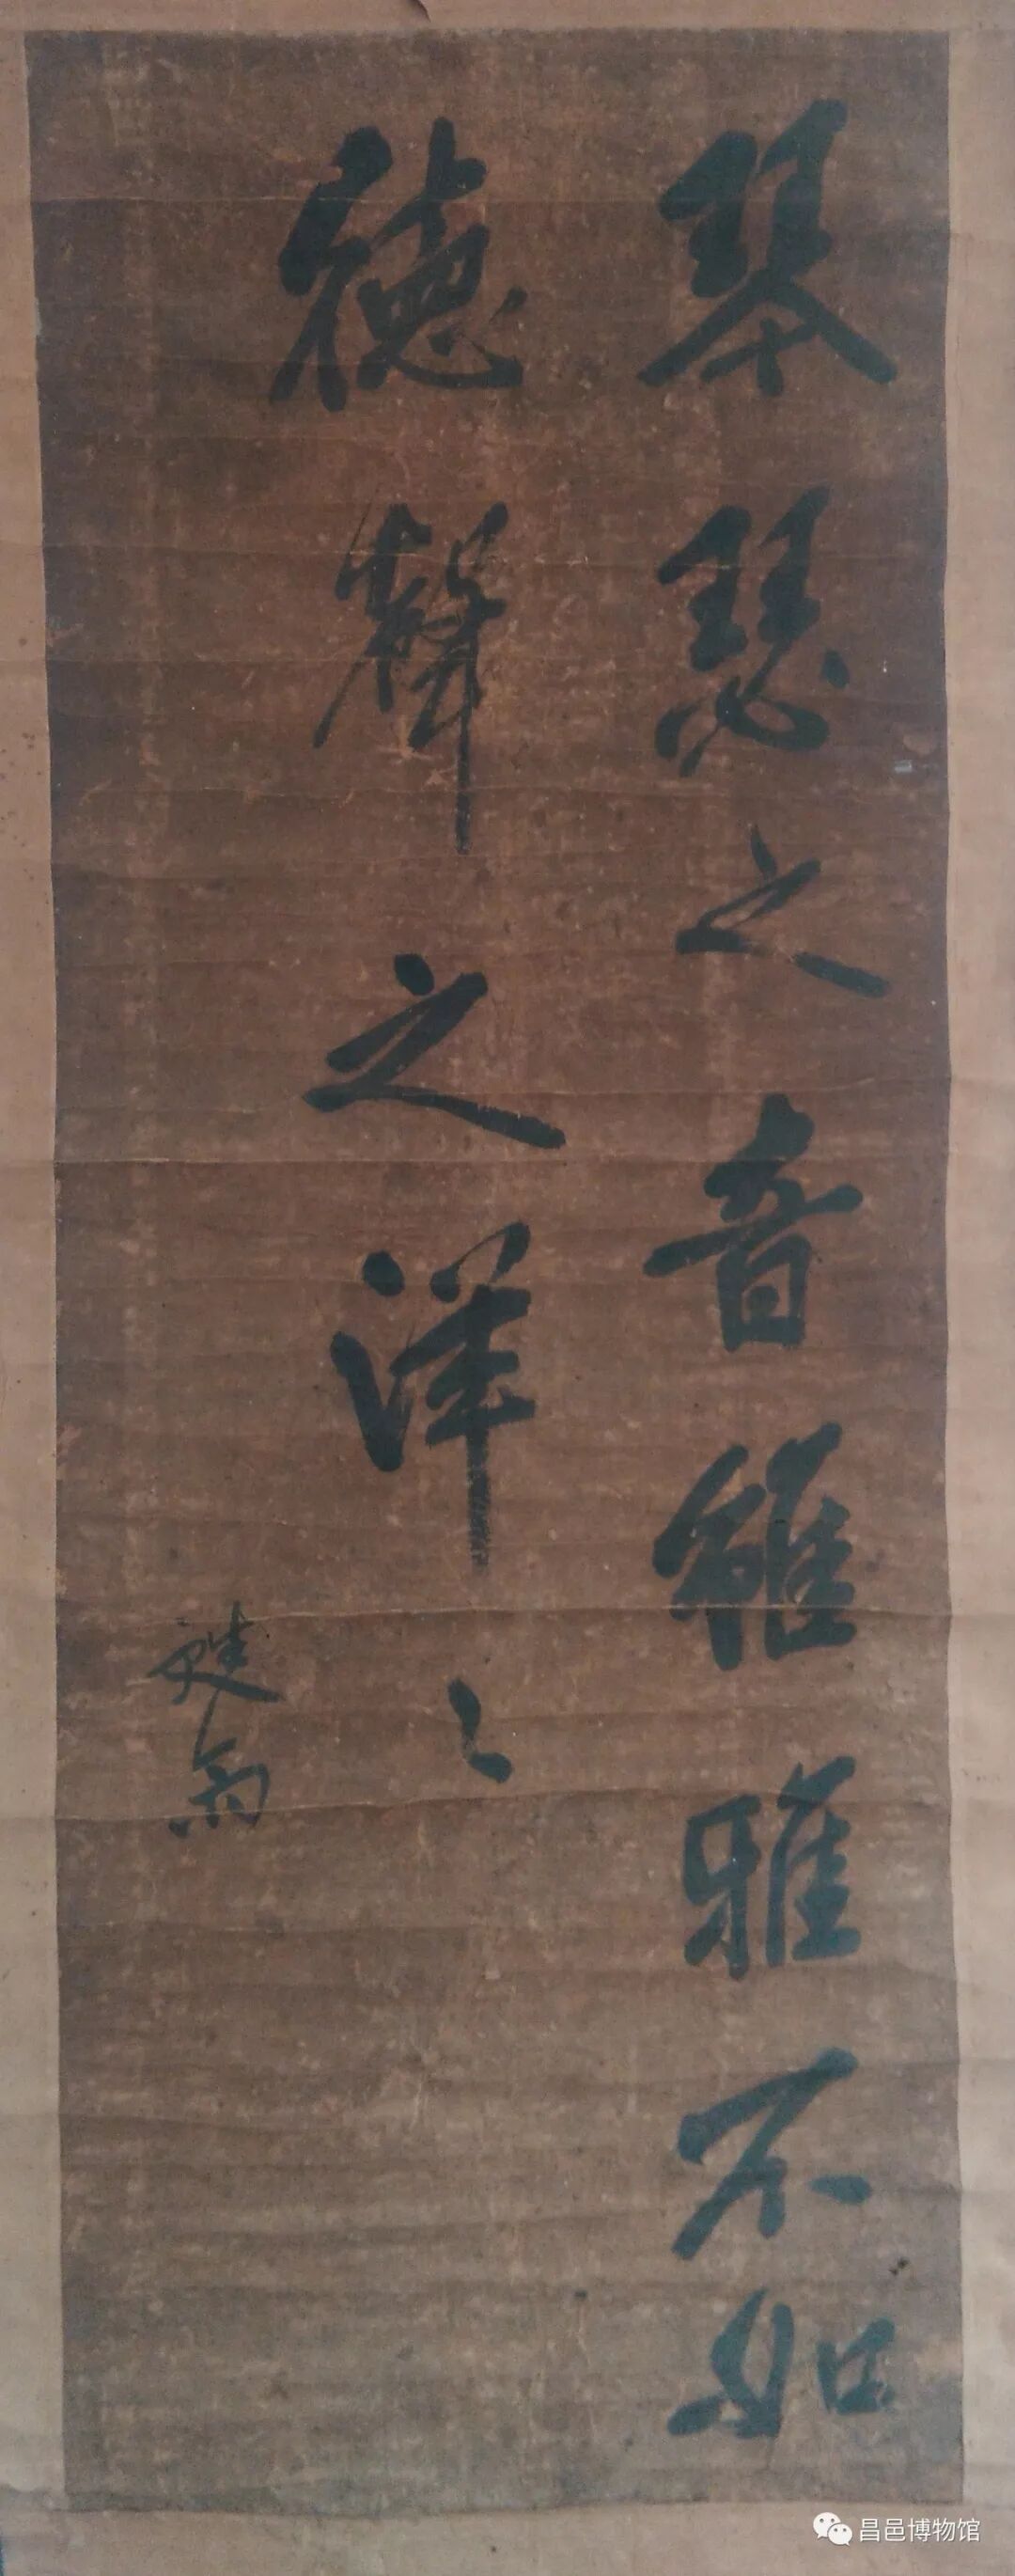 琴瑟之音雖雅不如
德聲之洋〻
昌邑博物馆